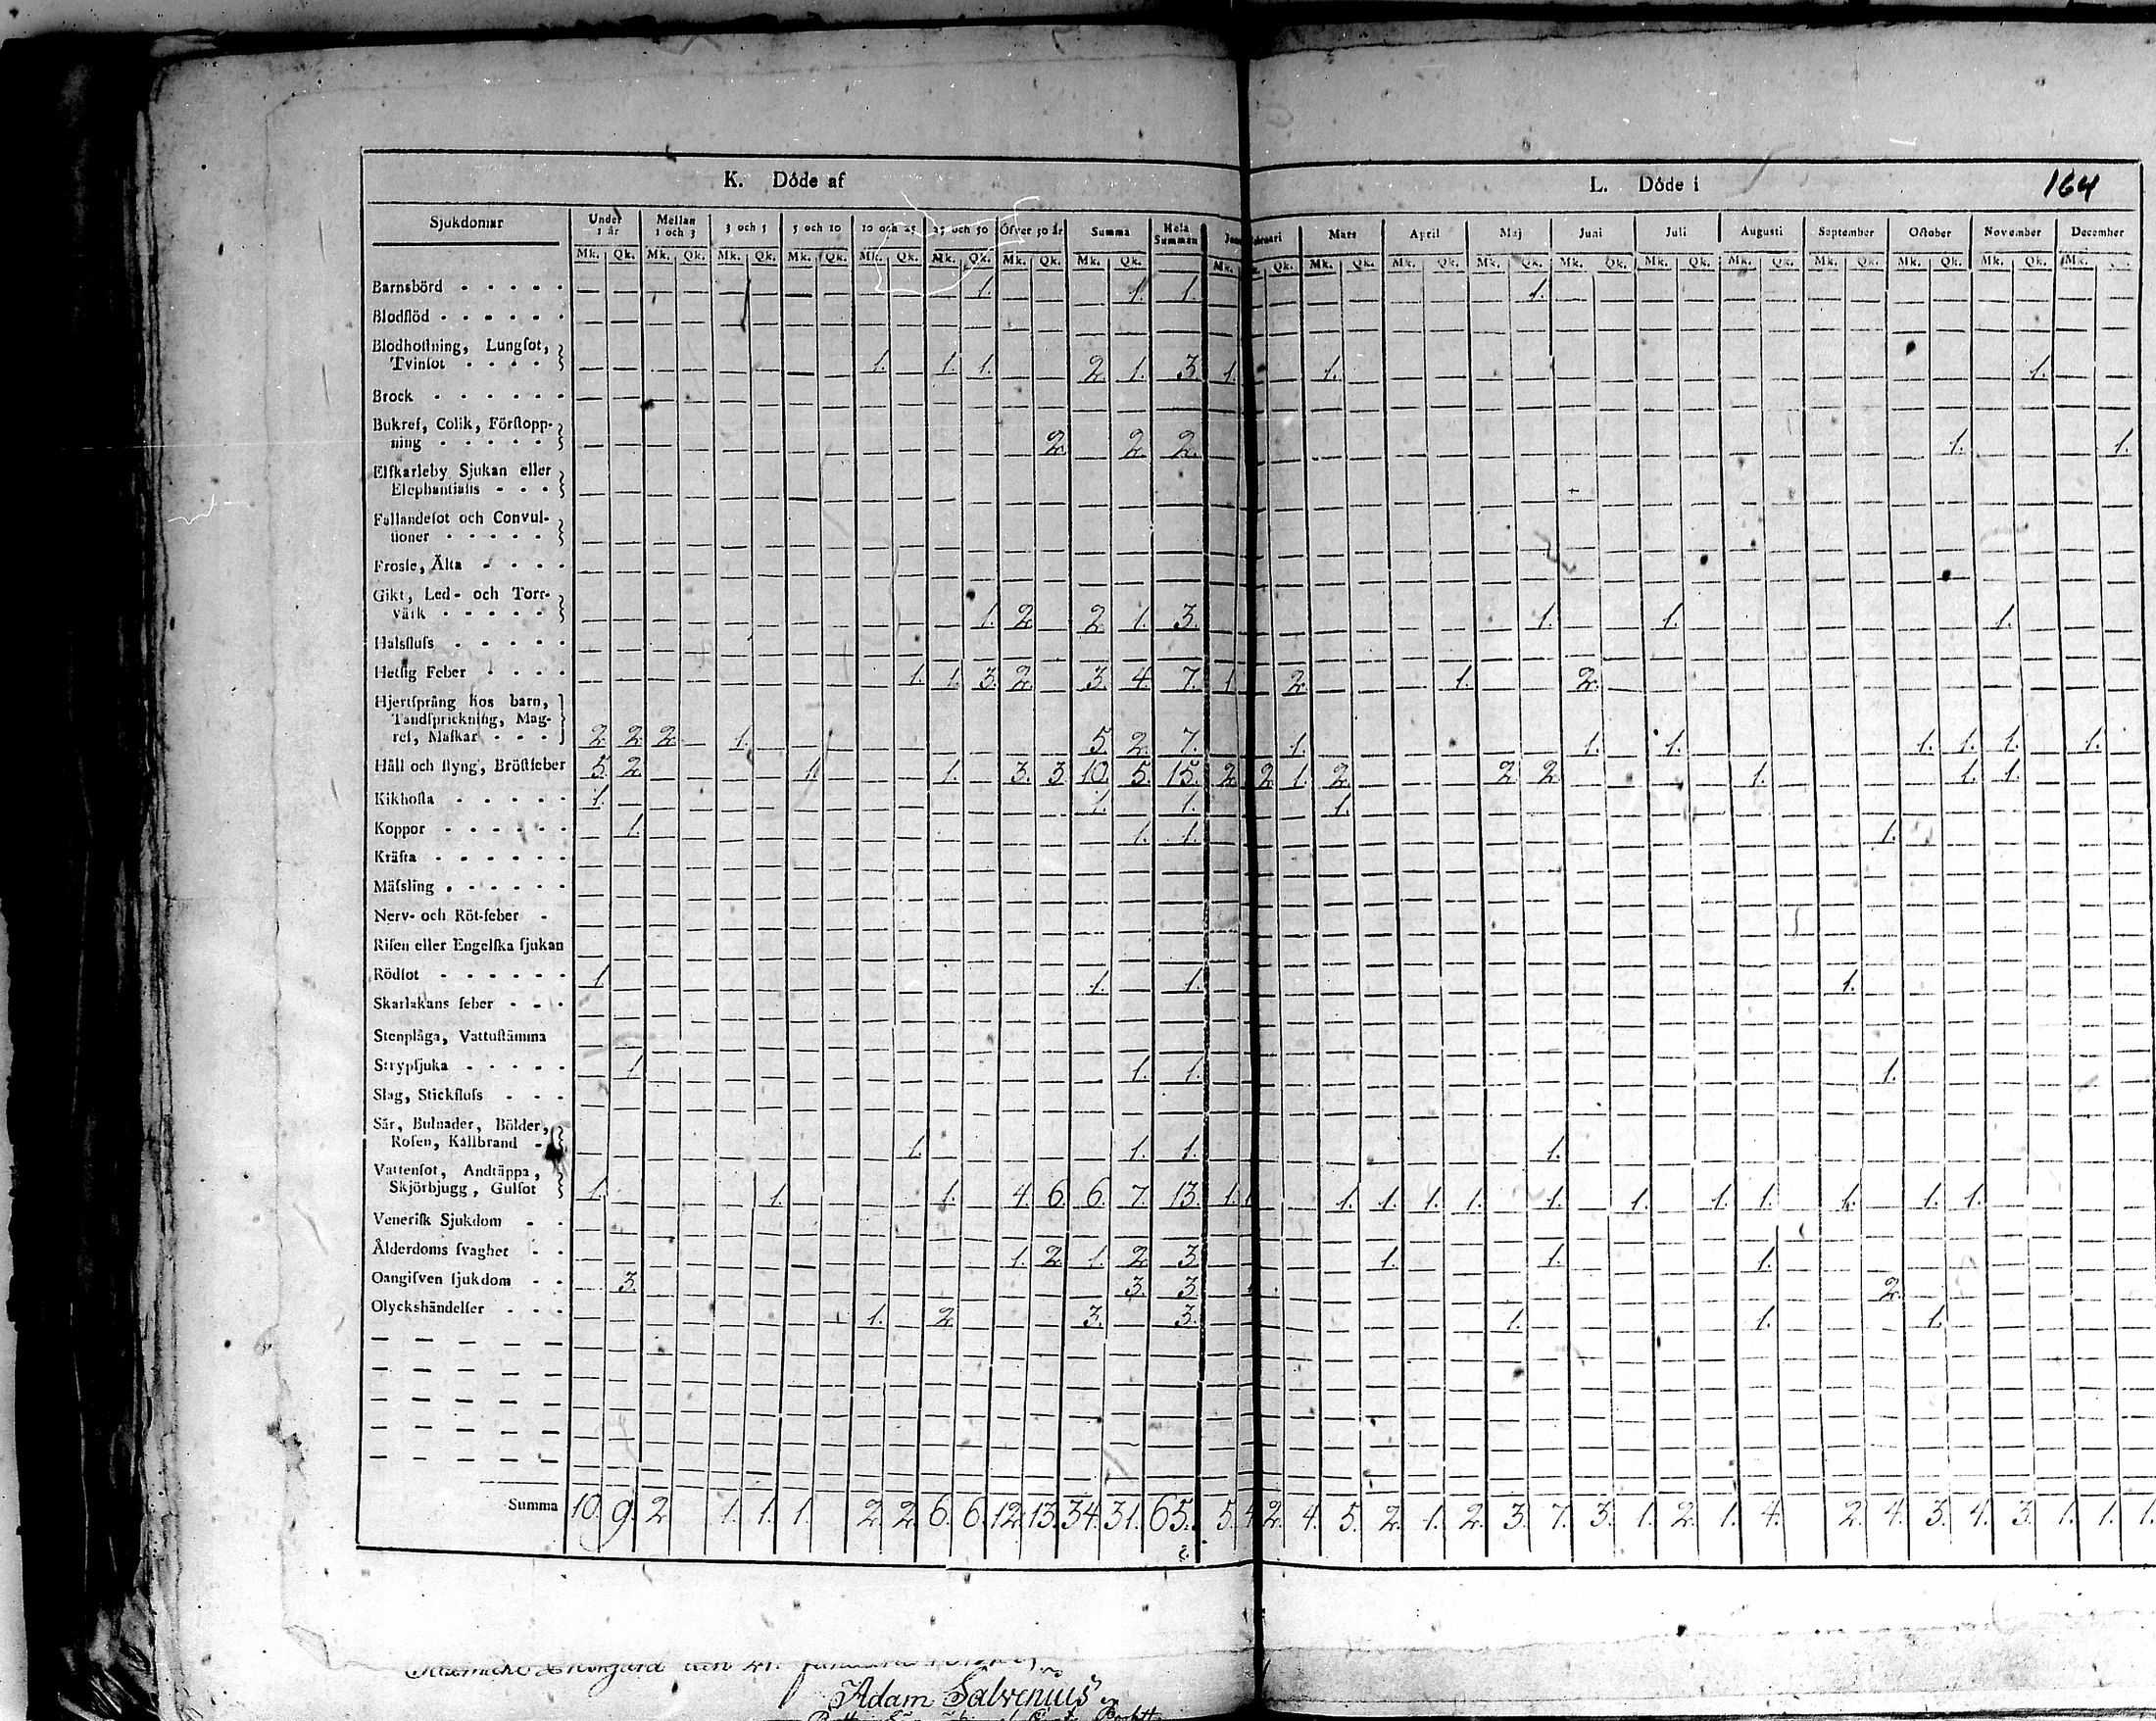 K. Döde af
L. Döde i
164
Sjukdomar Under 1 år Mellan 1 och 3 3 och 5 5 och 10 10 och 25 25 och 50 Öfver 50 år Summa Hela Summan Mars April Maj Juni Juli Augusti September October November December
Mk. Qk. Mk. Qk. Mk. Qk. Mk. Qk. Mk. Qk. Mk. Qk. Mk. Qk. Mk. Qk. Mk. Qk. Mk. Qk. Mk. Qk. Mk. Qk. Mk. Qk. Mk. Qk. Mk. Qk. Mk. Qk. Mk. Qk. Mk. Qk. Mk.
Barnsbörd 1. 1. 1. 1.
Blodflöd
Blodhostning, Lungsot,
Tvinsot 1. 1. 1. 2. 1. 3. 1. 1. 1.
Brock
Bukref, Colik, Förstopp-
ning 2. 2. 2. 1. 1.
Elfkarleby Sjukan eller
Elephantiasis
Fallandesot och Convul-
sioner
Frossa, Älta
Gikt, Led- och Torr-
värk 1. 2. 2. 1. 3. 1. 1. 1.
Halsfluss
Hetsig Feber 1. 1. 3. 2. 3. 4. 7. 1. 2. 1. 2.
Hjertsprång hos barn,
Tandsprickning, Mag-
ref, Maskar 2. 2. 2. 1. 5. 2. 7. 1. 1. 1. 1. 1. 1. 1.
Håll och styng, Bröstfeber 5. 2. 1. 1. 3. 3. 10. 5. 15. 2. 2. 1. 2. 2. 2. 1. 1. 1.
Kikhosta 1. 1. 1. 1.
Koppor 1. 1. 1. 1.
Kräfta
Mässling
Nerv- och Röt-feber
Risen eller Engelska sjukan
Rödsot 1. 1. 1. 1.
Skarlakans feber
Stenplåga, Vattustämma
Strypsjuka 1. 1. 1. 1.
Slag, Stickfluss
Sår, Bulnader, Bölder,
Rosen, Kallbrand 1. 1. 1. 1.
Vattensot, Andtäppa,
Skjörbjugg, Gulsot 1. 1. 1. 4. 6. 6. 7. 13. 1. 1. 1. 1. 1. 1. 1. 1. 1. 1. 1. 1. 1.
Venerisk Sjukdom
Ålderdoms svaghet 1. 2. 1. 2. 3. 1. 1. 1.
Oangifven sjukdom 3. 3. 3. 2.
Olyckshändelser 1. 2. 3. 3. 1. 1. 1.
Summa 10. 9. 2. 1. 1. 1. 2. 2. 6. 6. 12. 13. 34. 31. 65. 5. 4. 2. 4. 5. 2. 1. 2. 3. 7. 3. 1. 2. 1. 4. 2. 4. 3. 4. 3. 1. 1. 1.
Adam Salvenius